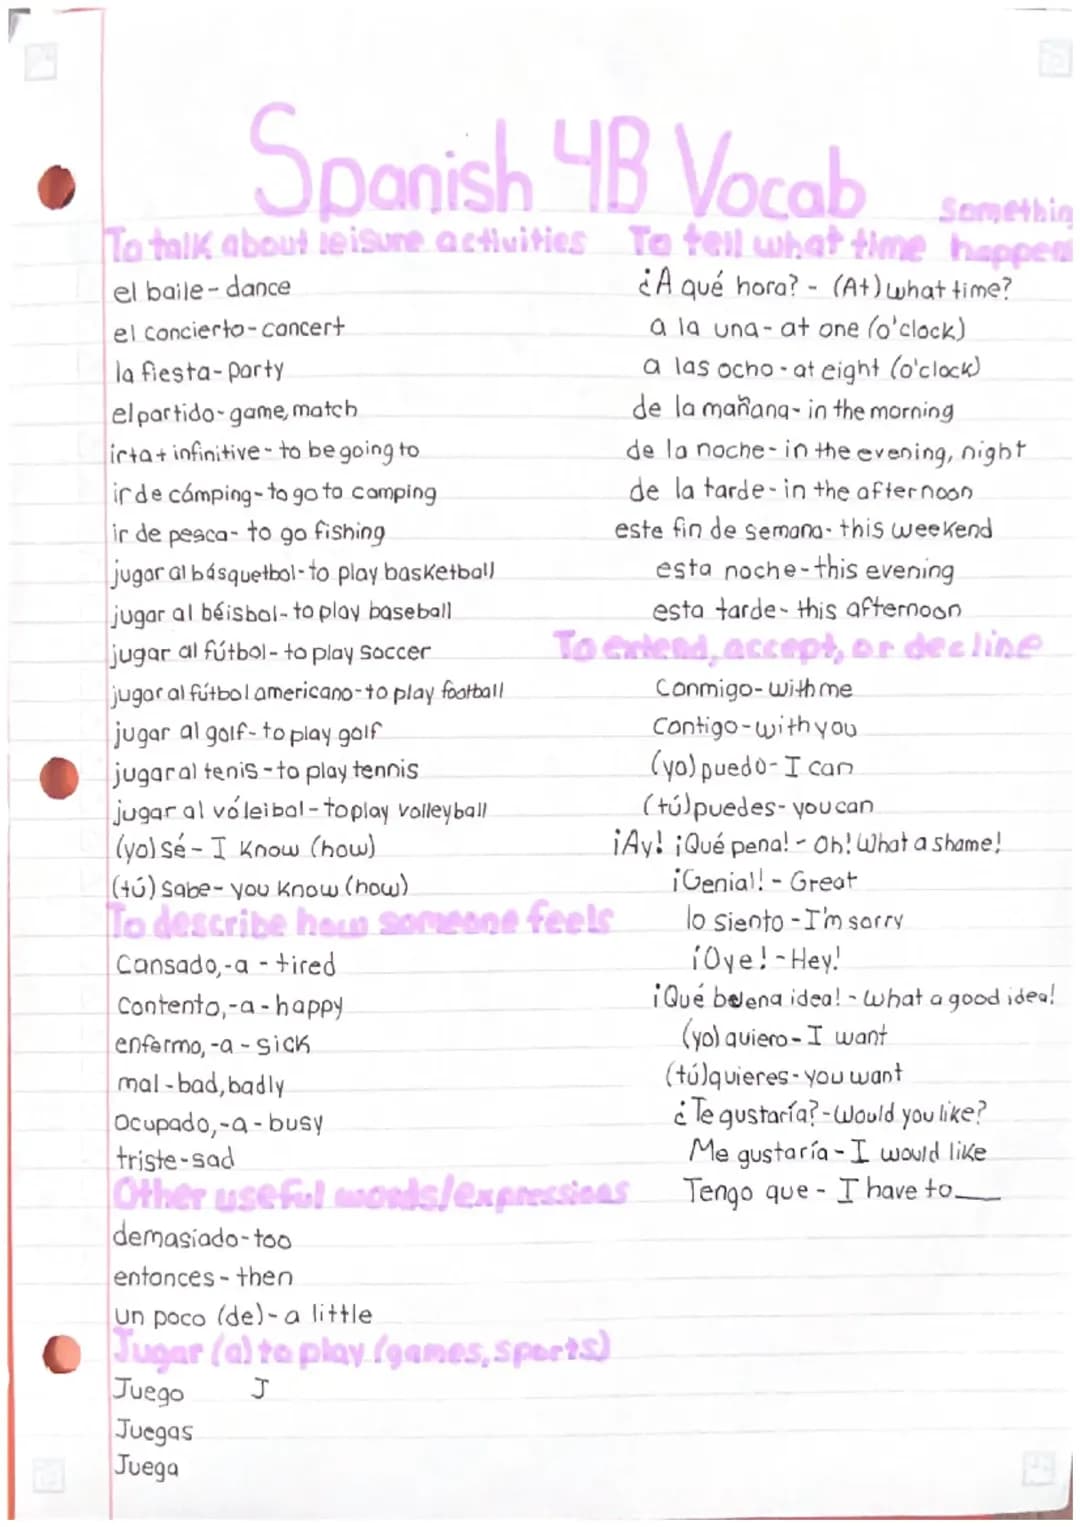 Spanish 4B Vocab
To talk about leisure activities
el baile - dance
el concierto - concert
la fiesta - party
el partido - game, match
ir ta + infinitive - to be going to
ir de cámping - to go to camping
ir de pesca - to go fishing
jugar al básquetbol - to play basketball
jugar al béisbol - to play baseball
jugar al fútbol - to play soccer
jugar al fútbol americano - to play football
jugar al golf - to play golf
jugar al tenis - to play tennis
jugar al vóleibol - to play volleyball
(yo) sé - I know (how)
(tú) Sabe - you know (how)
To describe how someone feels
Cansado,-a - tired
Contento,-a - happy
enfermo, -a - sick
mal - bad, badly
Ocupado,-a - busy
triste - sad
Other useful words/expressions
demasiado - too
entonces - then
un poco (de) - a little
Jugar (a) to play (games, sports)
Juego J
Juegas
Juega
To tell what time something happen
¿A qué hora? - (At) what time?
a la una - at one (o'clock)
a las ocho - at eight (o'clock)
de la mañana - in the morning
de la noche - in the evening, night
de la tarde - in the afternoon
este fin de semana - this weekend
esta noche - this evening
esta tarde - this afternoon
To extend, accept, or decline
Conmigo - with me
Contigo - with you
(yo) puedo - I can
(tú) puedes - you can
¡Ay! ¡Qué pena! - Oh! What a shame!
¡Genial! - Great
lo siento - I'm sorry
¡Oye! - Hey!
¡Qué buena idea! - What a good idea!
(yo) quiero - I want
(tú) quieres - you want
¿Te gustaría? - Would you like?
Me gustaría - I would like
Tengo que - I have to ___